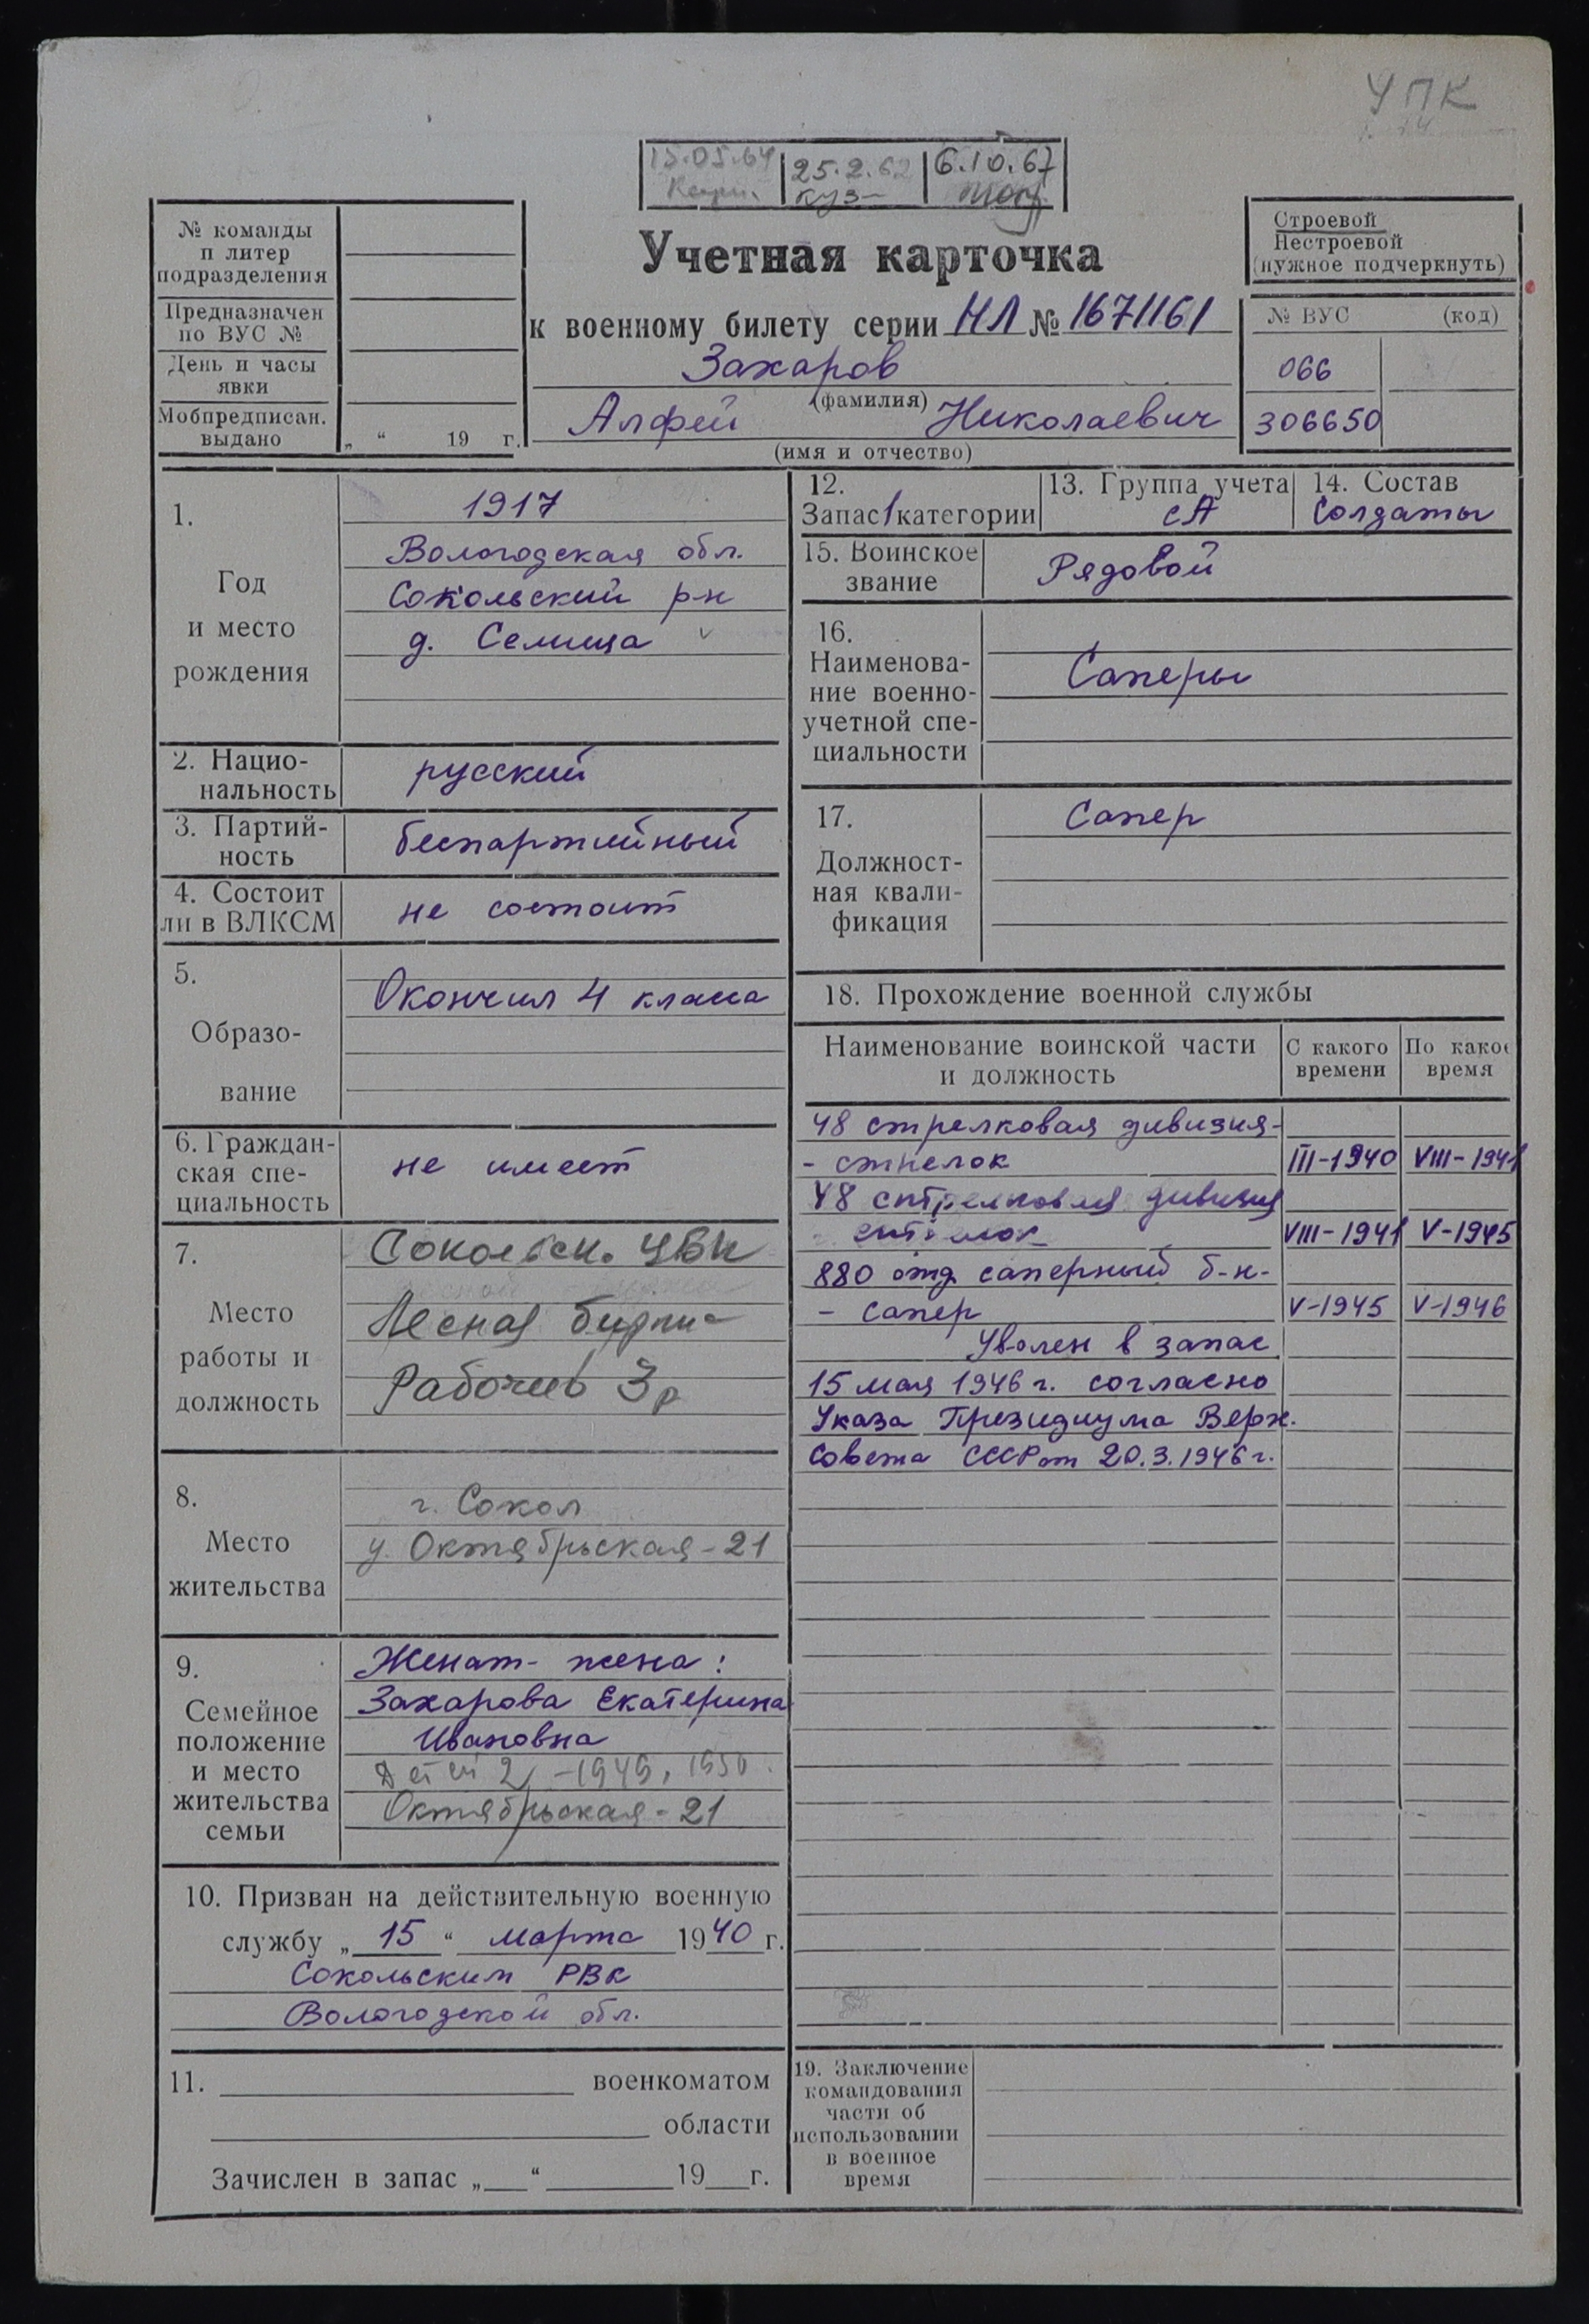 УПК
15.05.64 25.2.62 6.10.67
куз-
№ команды
п литер
подразделения
Предназначен
по ВУС №
День и часы
явки
Мобпредписан.
выдано
„ “ 19 г.
Учетная карточка
к военному билету серии НЛ № 1671161
Захаров
(фамилия)
Алфей Николаевич
(имя и отчество)
Строевой
Нестроевой
(нужное подчеркнуть)
№ ВУС (код)
066
306650
1.
Год
и место
рождения
1917
Вологодская обл.
Сокольский р-н
д. Селища
2. Нацио-
нальность
русский
3. Партий-
ность
беспартийный
4. Состоит
ли в ВЛКСМ
не состоит
5.
Образо-
вание
Окончил 4 класса
6. Граждан-
ская спе-
циальность
не имеет
7.
Место
работы и
должность
Сокольск. ЦБК
Лесная биржа
Рабочий 3р
8.
Место
жительства
г. Сокол
у. Октябрьская-21
9.
Семейное
положение
и место
жительства
семьи
Женат- жена:
Захарова Екатерина
Ивановна
Детей 2 -1949, 1950
Октябрьская-21
10. Призван на действительную военную
службу „15“ марта 1940 г.
Сокольским РВК
Вологодской обл.
11. военкоматом
области
Зачислен в запас „ “ 19 г.
12.
Запас 1 категории
13. Группа учета
СА
14. Состав
Солдаты
15. Воинское
звание
Рядовой
16.
Наименова-
ние военно-
учетной спе-
циальности
Саперы
17.
Должност-
ная квали-
фикация
Сапер
18. Прохождение военной службы
Наименование воинской части
и должность
С какого
времени
По какое
время
48 стрелковая дивизия-
- стрелок III-1940 VIII-1941
48 стрелковая дивизия
- стрелок VIII-1941 V-1945
880 отд саперный б-н-
- сапер V-1945 V-1946
Уволен в запас
15 мая 1946 г. согласно
Указа Президиума Верх.
Совета СССР от 20.3.1946 г.
19. Заключение
командования
части об
использовании
в военное
время